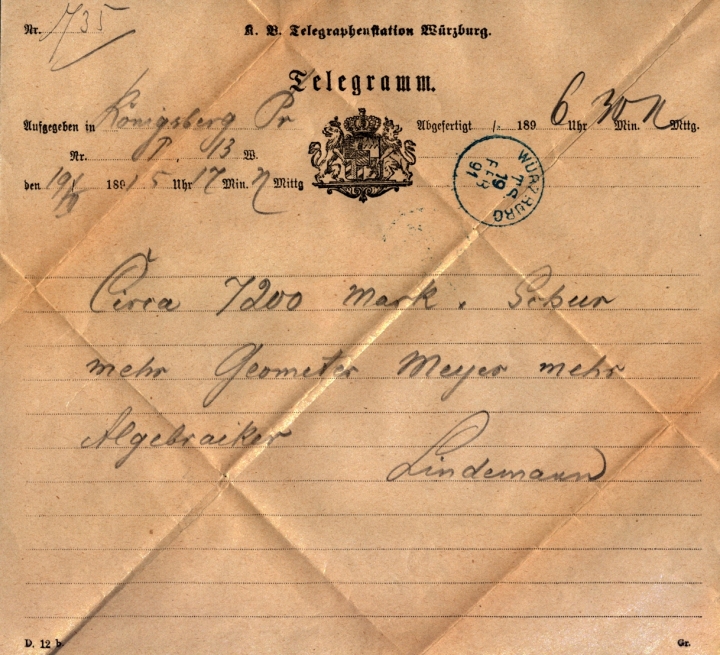 Nr. 1735
K. B. Telegraphenstation Würzburg.
Telegramm.
Aufgegeben in Königsberg Pr
Abgefertigt 189 6 Uhr 30 Min. N Mttg.
Nr. 13 W.
den 19/2 1891 5 Uhr 17 Min. N Mittg
WÜRZBURG
19
FEB
91
Circa 7200 Mark. Schur
mehr Geometer Meyer mehr
Algebraiker
Lindemann
D. 12 b.
Gr.